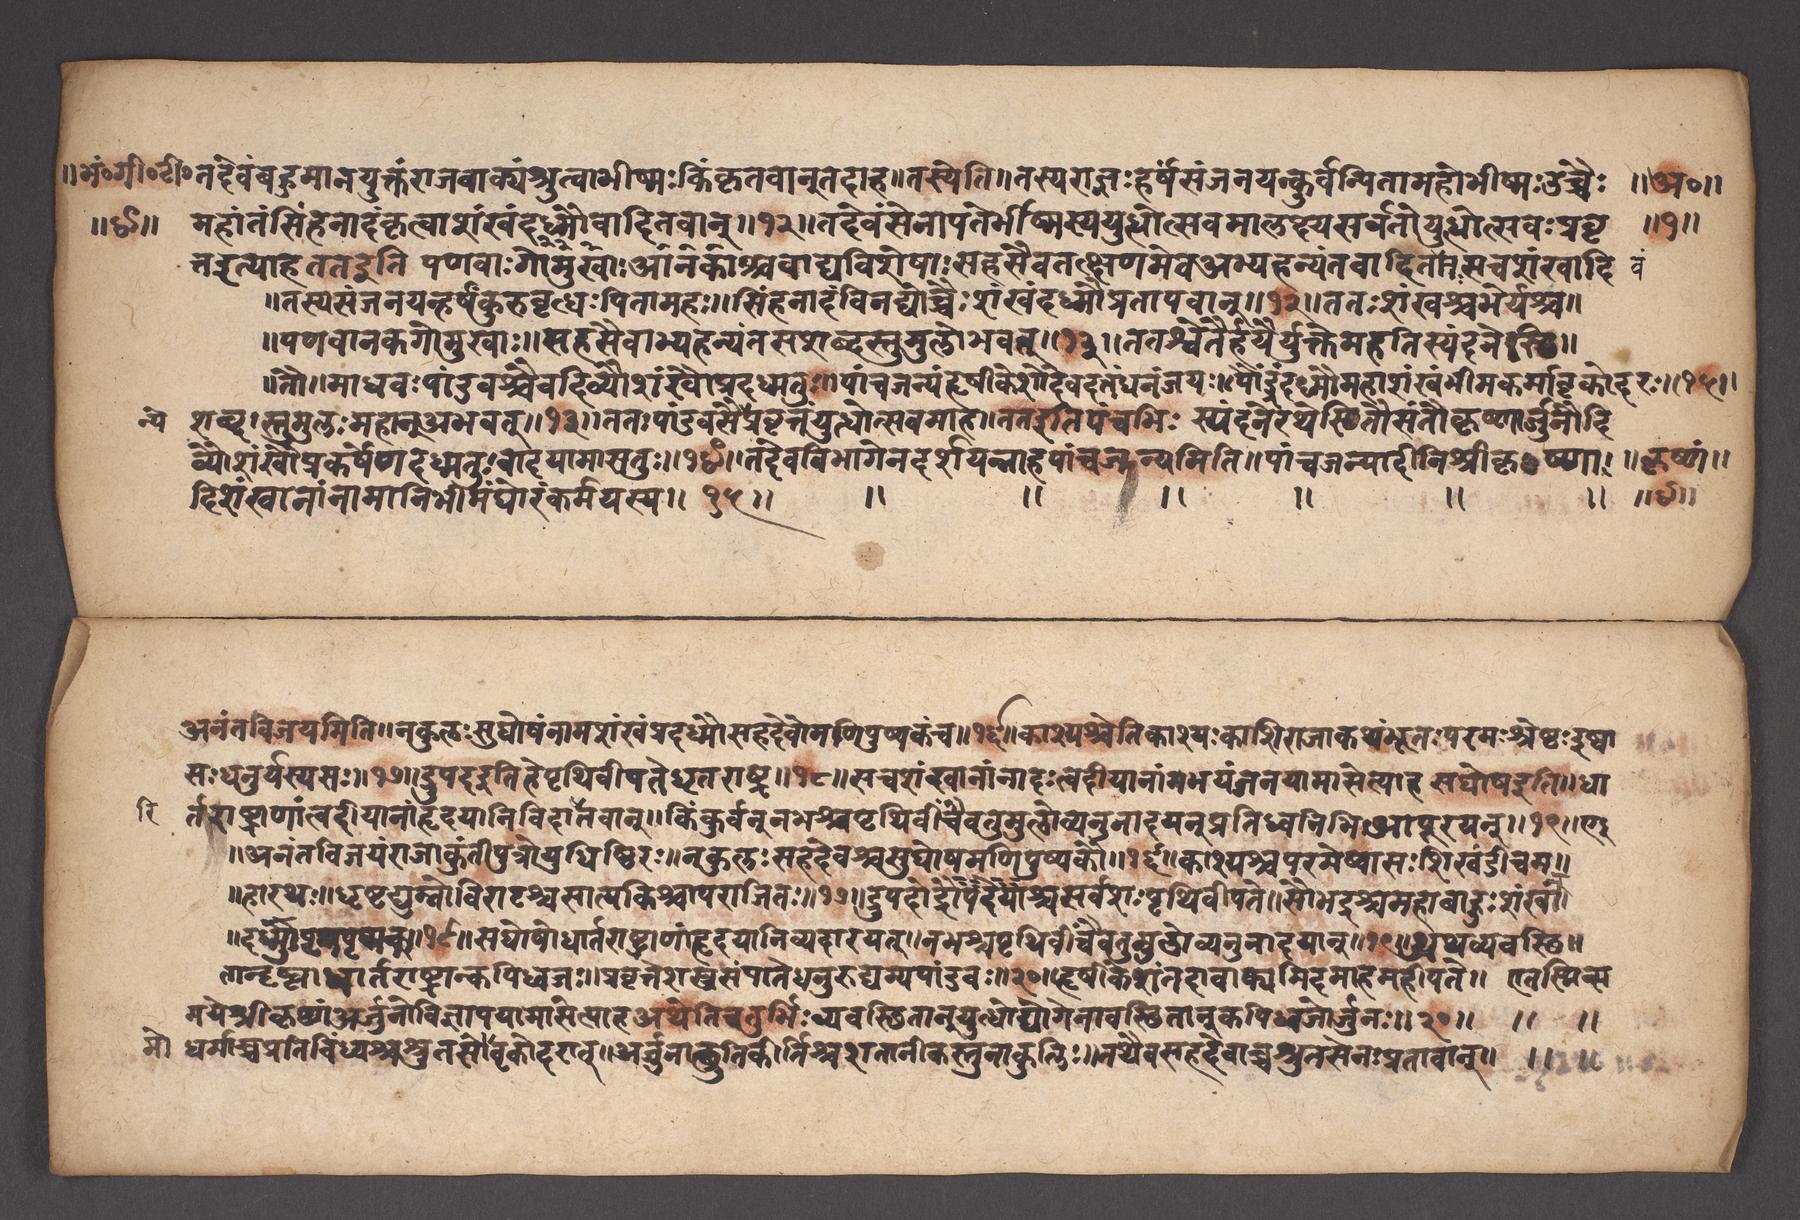 ॥भ॰गी॰टी॰ तदेवंबहुमानयुक्तंराजवाक्यंश्रुत्वाभीष्मःकिंकृतवान्तदाह॥तस्येति॥तस्यराज्ञःहर्षसंजनयन्कुर्वन्पितामहोभीष्मःउच्चैः ॥अ॰॥
॥४॥ महांतंसिंहनादंकृत्वाशंखंदध्मौवादितवान्॥१२॥तदेवंसेनापतेर्भीष्मस्ययुध्दोत्सवमालक्ष्यसर्वतोयुध्दोत्सवःप्रवृ ॥१॥
तइत्याहततइति पणवाःगोमुखाःआनकाश्चवाद्यविशेषाःसहसैवतत्क्षणमेवअभ्यहन्यंतवादिताःसचशंखादि वं
॥तस्यसंजनयन्हर्षंकुरुवृध्दःपितामहः॥सिंहनादंविनद्योच्चैःशंखंदध्मौप्रतापवान्॥१२॥ततःशंखश्चभेर्यश्च॥
॥पणवानकगोमुखाः॥सहसैवाभ्यहन्यंतसशब्दस्तुमुलोभवत्॥१३॥ततश्वेतैर्हयैर्युक्तेमहतिस्यंदनेस्थि॥
॥तौ॥माधवःपांडवश्चैवदिव्यौशंखौप्रदध्मतुः॥पांचजन्यंहृषीकेशोदेवदत्तंधनंजयः॥पौंड्रंदध्मौमहाशंखंभीमकर्मावृकोदरः॥१५॥
न्ये शब्दःस्तुमुलःमहान्अभवत्॥१३॥ततःपांडवसैप्रवृत्तंयुध्दोत्सवमाह॥ततइतिपंचभिः स्यंदनेरथेस्थितौसंतौकृष्णार्जुनौदि
व्यौशंखौप्रकर्षेणदध्मतुःवादयामासतुः॥१४॥तदेवविभागेनदर्शयन्नाहपांचजन्यमिति॥पांचजन्यादीनिश्रीकृष्णा ॥कृष्णं॥
दिशंखानांनामानिभीमंघोरंकर्मयस्य॥ १५॥ ॥ ॥ ॥ ॥ ॥ ॥ ॥४॥
अनंतविजयमिति॥नकुलःसुघोषंनामशंखंप्रदध्मौसहदेवोमणिपुष्पकंच॥१६॥काश्यश्चेतिकाश्यःकाशिराजाकथंभूतःपरमःश्रेष्ठःइष्वा
सःधनुर्यस्यसः॥१७॥द्रुपदइतिहेपृथिवीपतेधृतराष्ट्र॥१८॥सचशंखानांनादःत्वदीयानांमभयंजनयामासेत्याह सघोषइति॥धा
रि र्तराष्ट्राणांत्वदीयानांहृदयानिविदातवान्॥किंकुर्वन्नभश्चपृथिवींचैवतुमुलोव्यनुनादयन्प्रतिध्वनिभिःआपूरयन्॥१९॥
॥अनंतविजयंराजाकुंतीपुत्रोयुधिष्ठिरः॥नकुलःसहदेवश्चसुघोषमणिपुष्पकौ॥१६॥काश्यश्चपरमेष्वासःशिखंडीचम॥
॥हारथः॥धृष्टद्युम्नोविराटश्चसात्यकिश्चापराजितः॥१७॥द्रुपदोद्रौपदेयाश्चसर्वशःपृथिवीपते॥सौभद्रश्चमहाबाहुःशंखा॥
॥दध्मुःपृथक्पृथक्॥१८॥सघोषोधार्तराष्ट्राणांहृदयानिव्यदारयत्॥नभश्चपृथिवींचैवतुमुलोव्यनुनादयान्॥१९॥अथव्यवस्थि॥
तान्दृष्ट्वाधार्तराष्ट्रान्कपिध्वजः॥प्रवृत्तेशस्त्रसंपातेधनुरुद्यम्यपांडवः॥२०॥हृषीकेशंतदावाक्यमिदमाहमहीपते॥ एतस्मिन्स
मयेश्रीकृष्णंअर्जुनोविज्ञापयामासेत्याहअथेतिचतुर्भिःव्यवस्थितान्युध्दोद्योगेनावस्थितान्कपिध्वजोर्जुनः॥२०॥ ॥ ॥
मो धर्माच्चप्रतिविंध्यश्चश्रुतसोवृकोदरात्॥अर्जुनाच्छ्रुतिकीर्तिश्चशतानीकस्तुनाकुलिः॥तथैवसहदेवाच्चश्रुतसेनःप्रतावान्॥ ॥ ॥